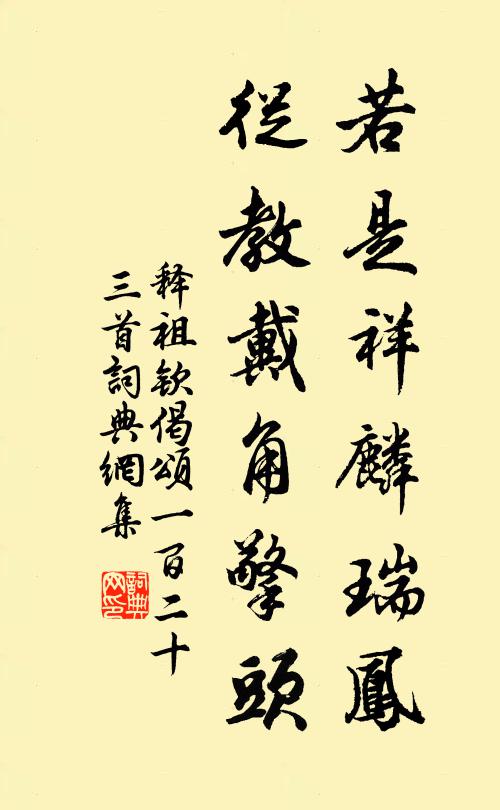 若是祥麟瑞鳳
從教戴角擎頭
释祖钦偈頌一百二十
三首詞典網集
詞典网印